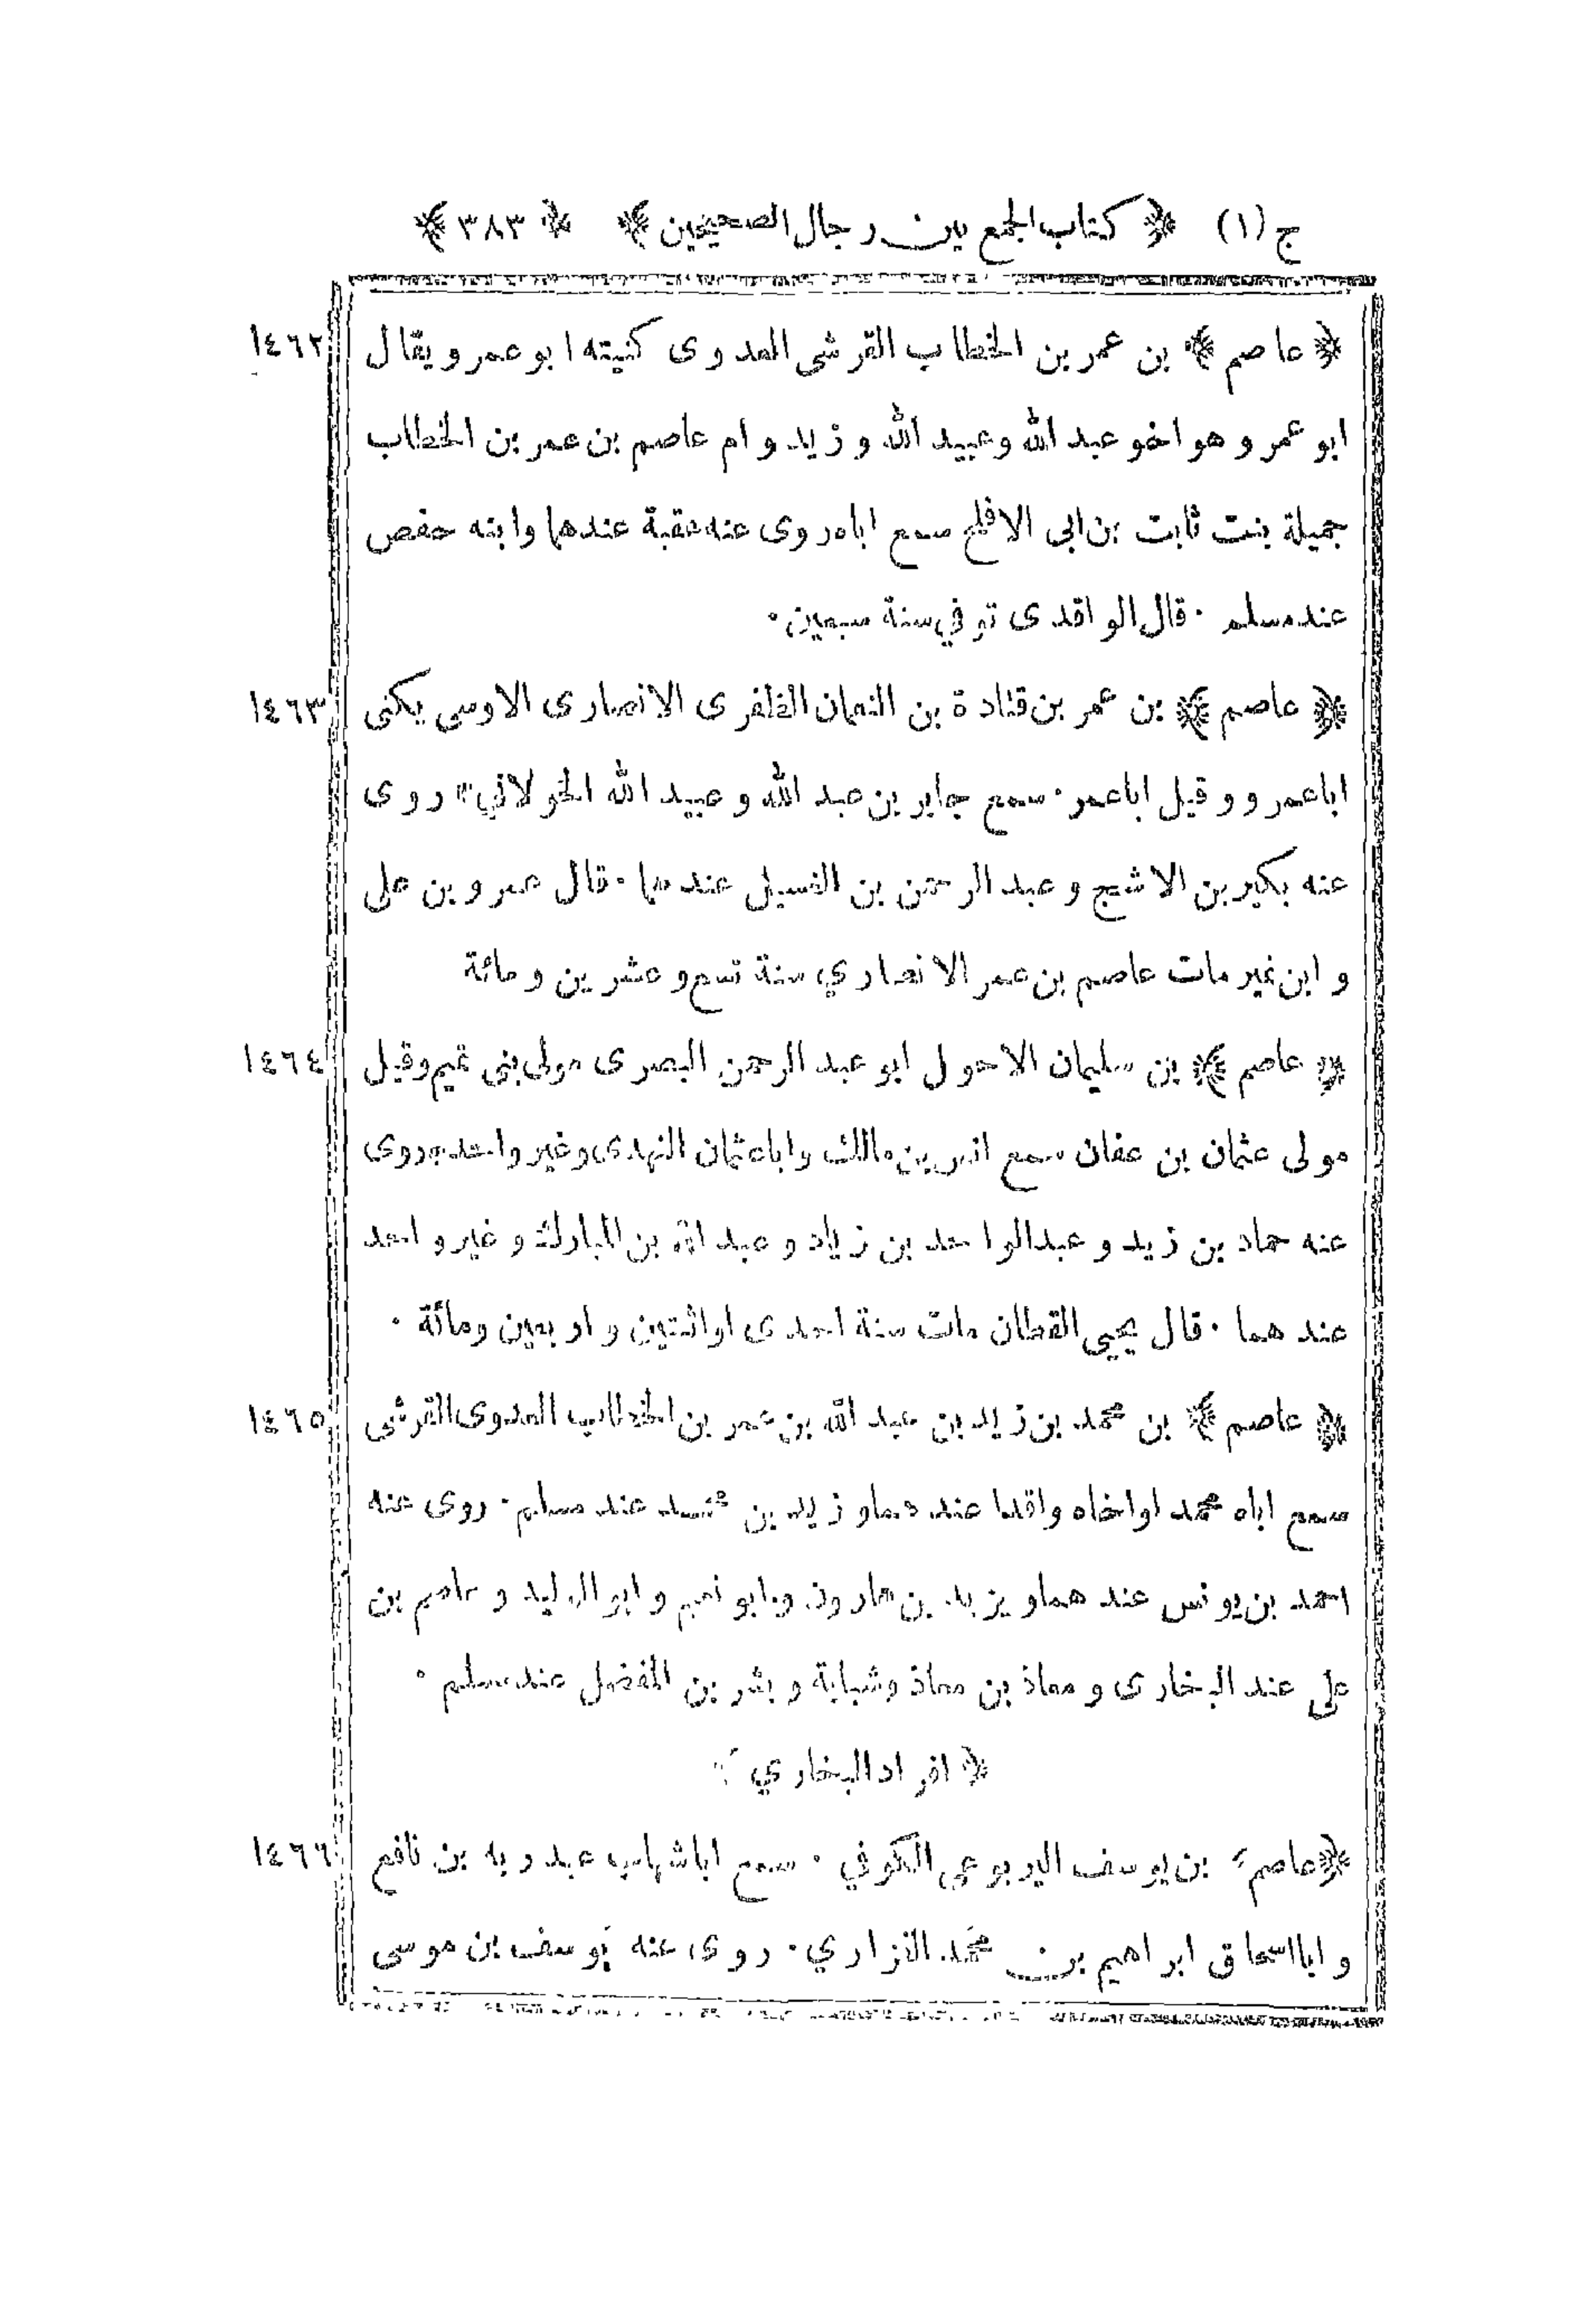 ج (١) ﴿ كتاب الجمع بين رجال الصحيحين ﴾ ﴿ ٣٨٣ ﴾
﴿ عاصم ﴾ بن عمر بن الخطاب القرشى العدوى كنيته ابو عمرو يقال ١٤٦٢
ابو عمر و هو اخو عبد الله وعبيد الله و زيد و ام عاصم بن عمر بن الخطاب
جميلة بنت ثابت بن ابى الافلح سمع اباه روى عنه عقبة عندهما وابنه حفص
عند مسلم · قال الواقدى توفي سنة سبعين ·
﴿ عاصم ﴾ بن عمر بن قتادة بن النعمان الظفرى الانصارى الاوسى يكنى ١٤٦٣
اباعمرو و قيل اباعمر · سمع جابر بن عبد الله و عبيد الله الخولاني · روى
عنه بكير بن الاشج و عبد الرحمن بن الغسيل عندهما · قال عمرو بن على
و ابن نمير مات عاصم بن عمر الانصاري سنة تسع و عشرين و مائة
﴿ عاصم ﴾ بن سليمان الاحول ابو عبد الرحمن البصرى مولى بنى تميم وقيل ١٤٦٤
مولى عثمان بن عفان سمع انس بن مالك واباعثمان النهدى وغير واحد · روى
عنه حماد بن زيد و عبدالواحد بن زياد و عبد الله بن المبارك و غير واحد
عند هما · قال يحيى القطان مات سنة احدى او اثنتين و اربعين ومائة ·
﴿ عاصم ﴾ بن محمد بن زيد بن عبد الله بن عمر بن الخطاب العدوى القرشى ١٤٦٥
سمع اباه محمد اواخاه واقدا عند هماو زيد بن عند مسلم · روى عنه
احمد بن يونس عند هماو يزيد بن هارون وابو نعيم و ابو الوليد و عاصم بن
على عند البخارى و معاذ بن معاذ وشبابة و بشر بن المفضل عند مسلم ·
﴿ افراد البخاري ﴾
﴿ عاصم ﴾ بن يوسف اليربوعى الكوفي · سمع اباشهاب عبد ربه بن نافع ١٤٦٦
و ابااسحاق ابراهيم بن محمد الفزاري · روى عنه يوسف بن موسى